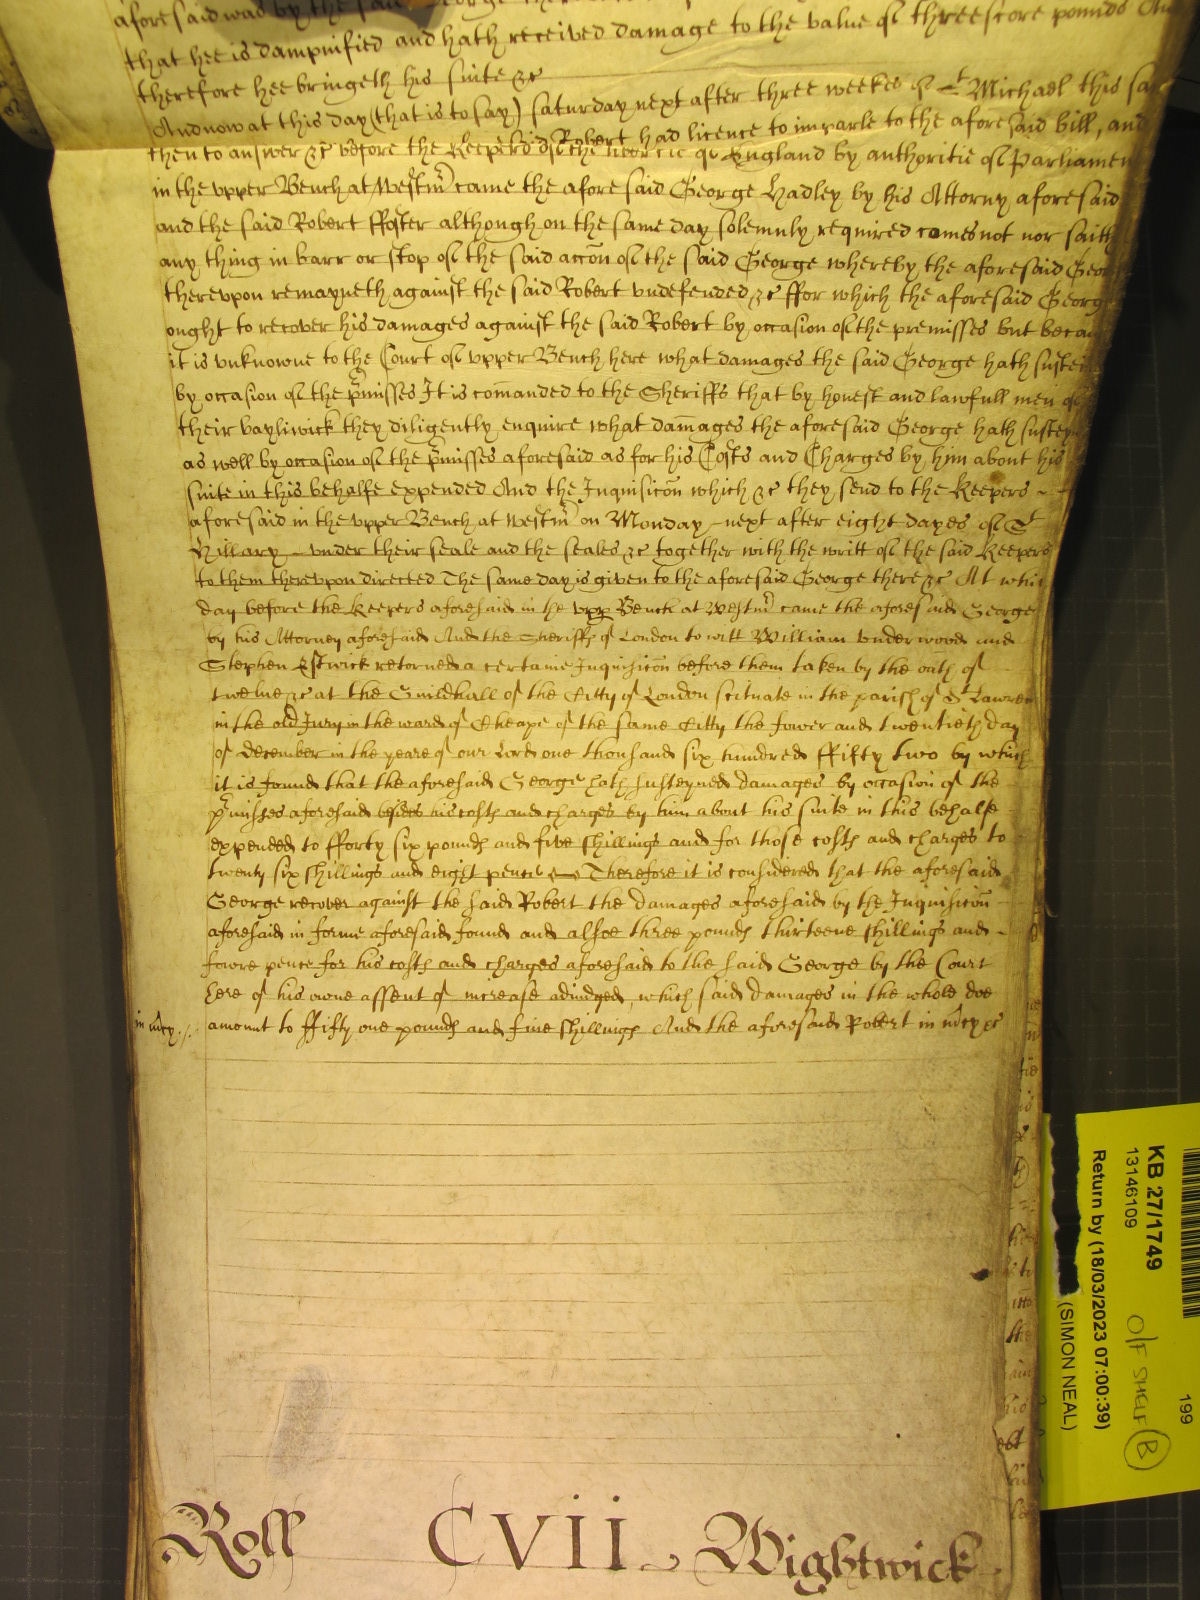 aforesaid was by the said George
that hee is dampnified and hath received damage to the value of threescore pounds And
therefore hee bringeth his suite &c
And now at this day (that is to say) saturday next after three weekes of St Michael this same
Robert had licence to imparle to the aforesaid bill, and
then to answer &c before the Keepers of the libertie of England by authoritie of Parliament
in the vpper Bench at Westmr came the aforesaid George Hadley by his Attorny aforesaid
and the said Robert ffoster although on the same day solemnly required comes not nor saith
any thing in barr or stop of the said accon of the said George whereby the aforesaid George
therevpon remayneth against the said Robert vndefended &c ffor which the aforesaid George
ought to recover his damages against the said Robert by occasion of the premisses but because
it is vnknowne to the Court of vpper Bench here what damages the said George hath susteined
by occasion of the pmisses It is comanded to the Sheriffs that by honest and lawfull men of
their bayliwick they diligently enquire what damages the aforesaid George hath susteyned
as well by occasion of the pmisses aforesaid as for his Costs and Charges by him about his
suite in this behalfe expended And the Inquisicon which &c they send to the Keepers
aforesaid in the vpper Bench at Westmr on Monday next after eight dayes of St
Hillary vnder their seale and the seales &c together with the writt of the said Keepers
to them therevpon directed The same day is given to the aforesaid George there &c At which
day before the Keepers aforesaid in the vpper Bench at Westmr came the aforesaid George
by his Attorney aforesaid And the Sheriffs of London to witt William Underwood and
Stephen Estwick retorned a certaine Inquisicon before them taken by the oath of
twelve &c at the Guildhall of the Citty of London scituate in the parish of St Lawrence
in the old Jury in the ward of Cheape of the same Citty the fower and twentieth day
of december in the yeare of our Lord one thousand six hundred ffifty two by which
it is found that the aforesaid George hath susteyned damages by occasion of the
pmisses aforesaid besides his costs and charges by him about his suite in this behalfe
expended to fforty six pounds and five shillings and for those costs and charges to
twenty six shillings and eight pence Therefore it is considered that the aforesaid
George recover against the said Robert the damages aforesaid by the Inquisicon
aforesaid in forme aforesaid found and alsoe three pounds thirteene shillings and
fowre pence for his costs and charges aforesaid to the said George by the Court
here of his owne assent of increase adiudged, which said damages in the whole doe
in mcy ./. amount to ffifty one pounds and five shillings And the aforesaid Robert in mcy &c
Roll CVII Wightwick
KB 27/1749
13146109
Return by (18/03/2023 07:00:39)
(SIMON NEAL)
O/F SHELF B
199